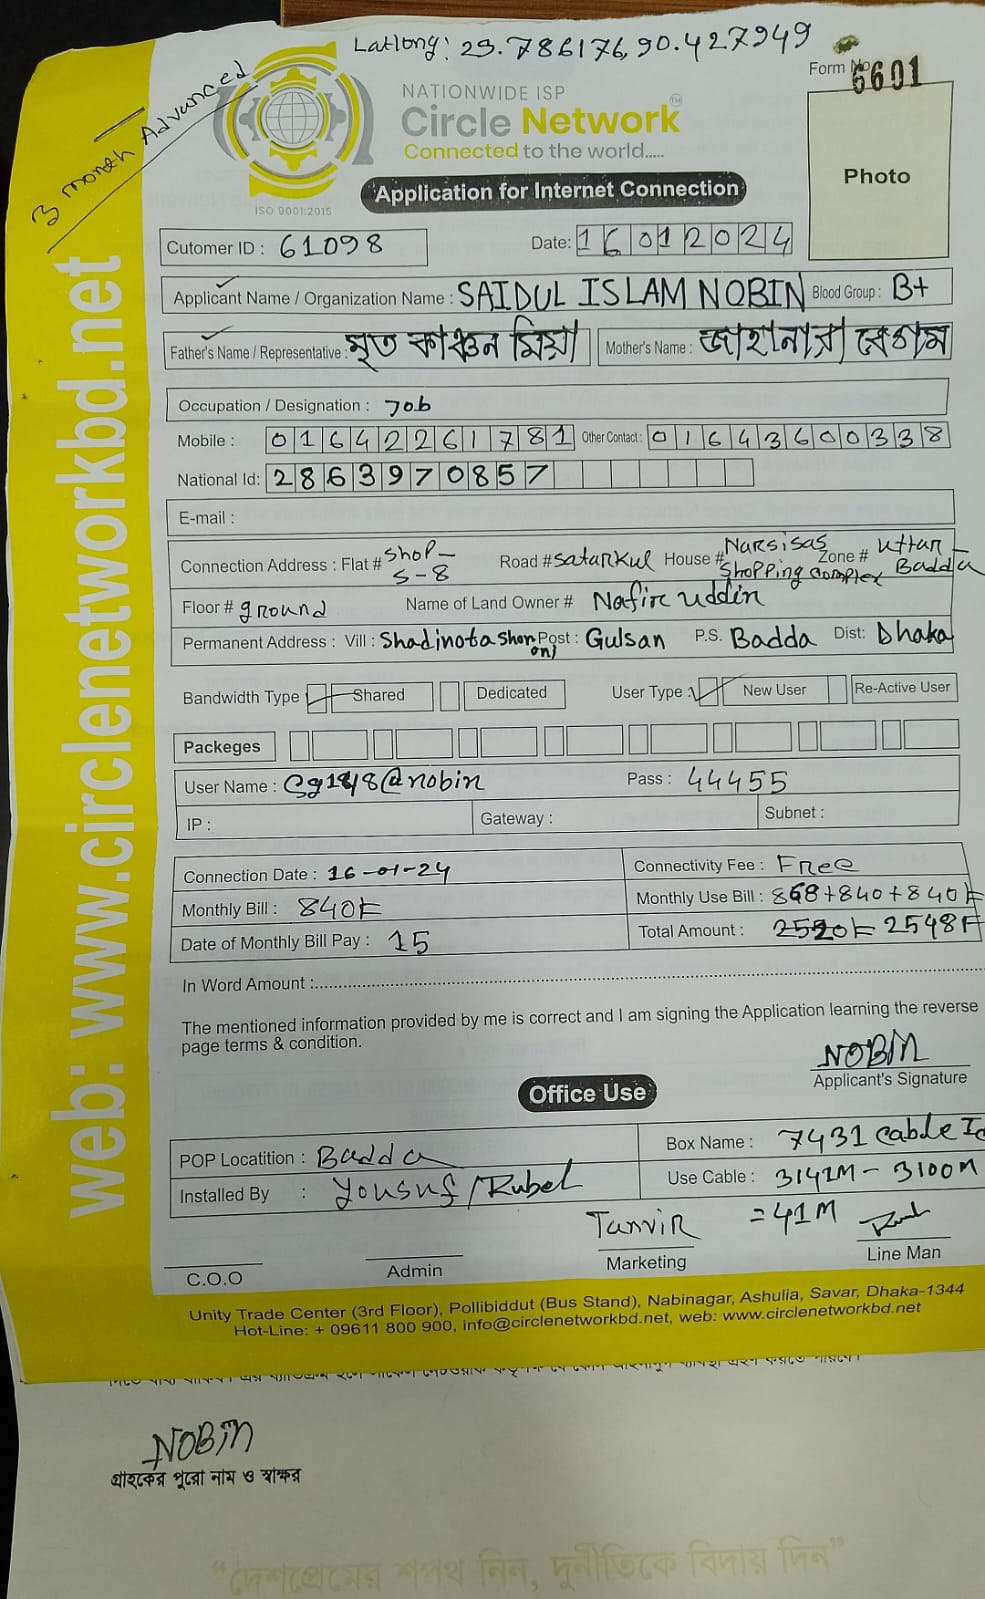 Latlong: 23.786176,90.427949
3 month Advanced
Form No. 6601
NATIONWIDE ISP
Circle Network TM
Connected to the world.....
ISO 9001:2015
Photo
Application for Internet Connection
Cutomer ID : 61098 Date: 16012024
Applicant Name / Organization Name : SAIDUL ISLAM NOBIN Blood Group : B+
Father's Name / Representative : মৃত কাঞ্চন মিয়া Mother's Name : জাহানারা বেগম
Occupation / Designation : Job
Mobile : 01642261781 Other Contact : 01643600338
National Id: 2863970857
E-mail :
Connection Address : Flat # Shop - S-8 Road # Satarkul House # Narsisas Shopping Complex Zone # Uttar - Badda
Floor # ground Name of Land Owner # Nafir uddin
Permanent Address : Vill : Shadinota Post : Gulsan P.S. Badda Dist: Dhaka
Bandwidth Type Shared Dedicated User Type : New User Re-Active User
Packeges
User Name : @nobin Pass : 44455
IP : Gateway : Subnet :
Connection Date : 16-01-24 Connectivity Fee : Free
Monthly Bill : 840 Monthly Use Bill : 868+840+840
Date of Monthly Bill Pay : 15 Total Amount : 2520 2548
In Word Amount :
The mentioned information provided by me is correct and I am signing the Application learning the reverse
page terms & condition.
NOBIN
Applicant's Signature
Office Use
POP Locatition : Badda Box Name : 7431 Cable
Installed By : Yousuf/Rubel Use Cable : 3141M - 3100M
= 41M
Tanvir
C.O.O Admin Marketing Line Man
Unity Trade Center (3rd Floor), Pollibiddut (Bus Stand), Nabinagar, Ashulia, Savar, Dhaka-1344
Hot-Line: + 09611 800 900, info@circlenetworkbd.net, web: www.circlenetworkbd.net
web: www.circlenetworkbd.net
NOBIN
গ্রাহকের পুরো নাম ও স্বাক্ষর
“দেশপ্রেমের শপথ নিন, দুর্নীতিকে বিদায় দিন”